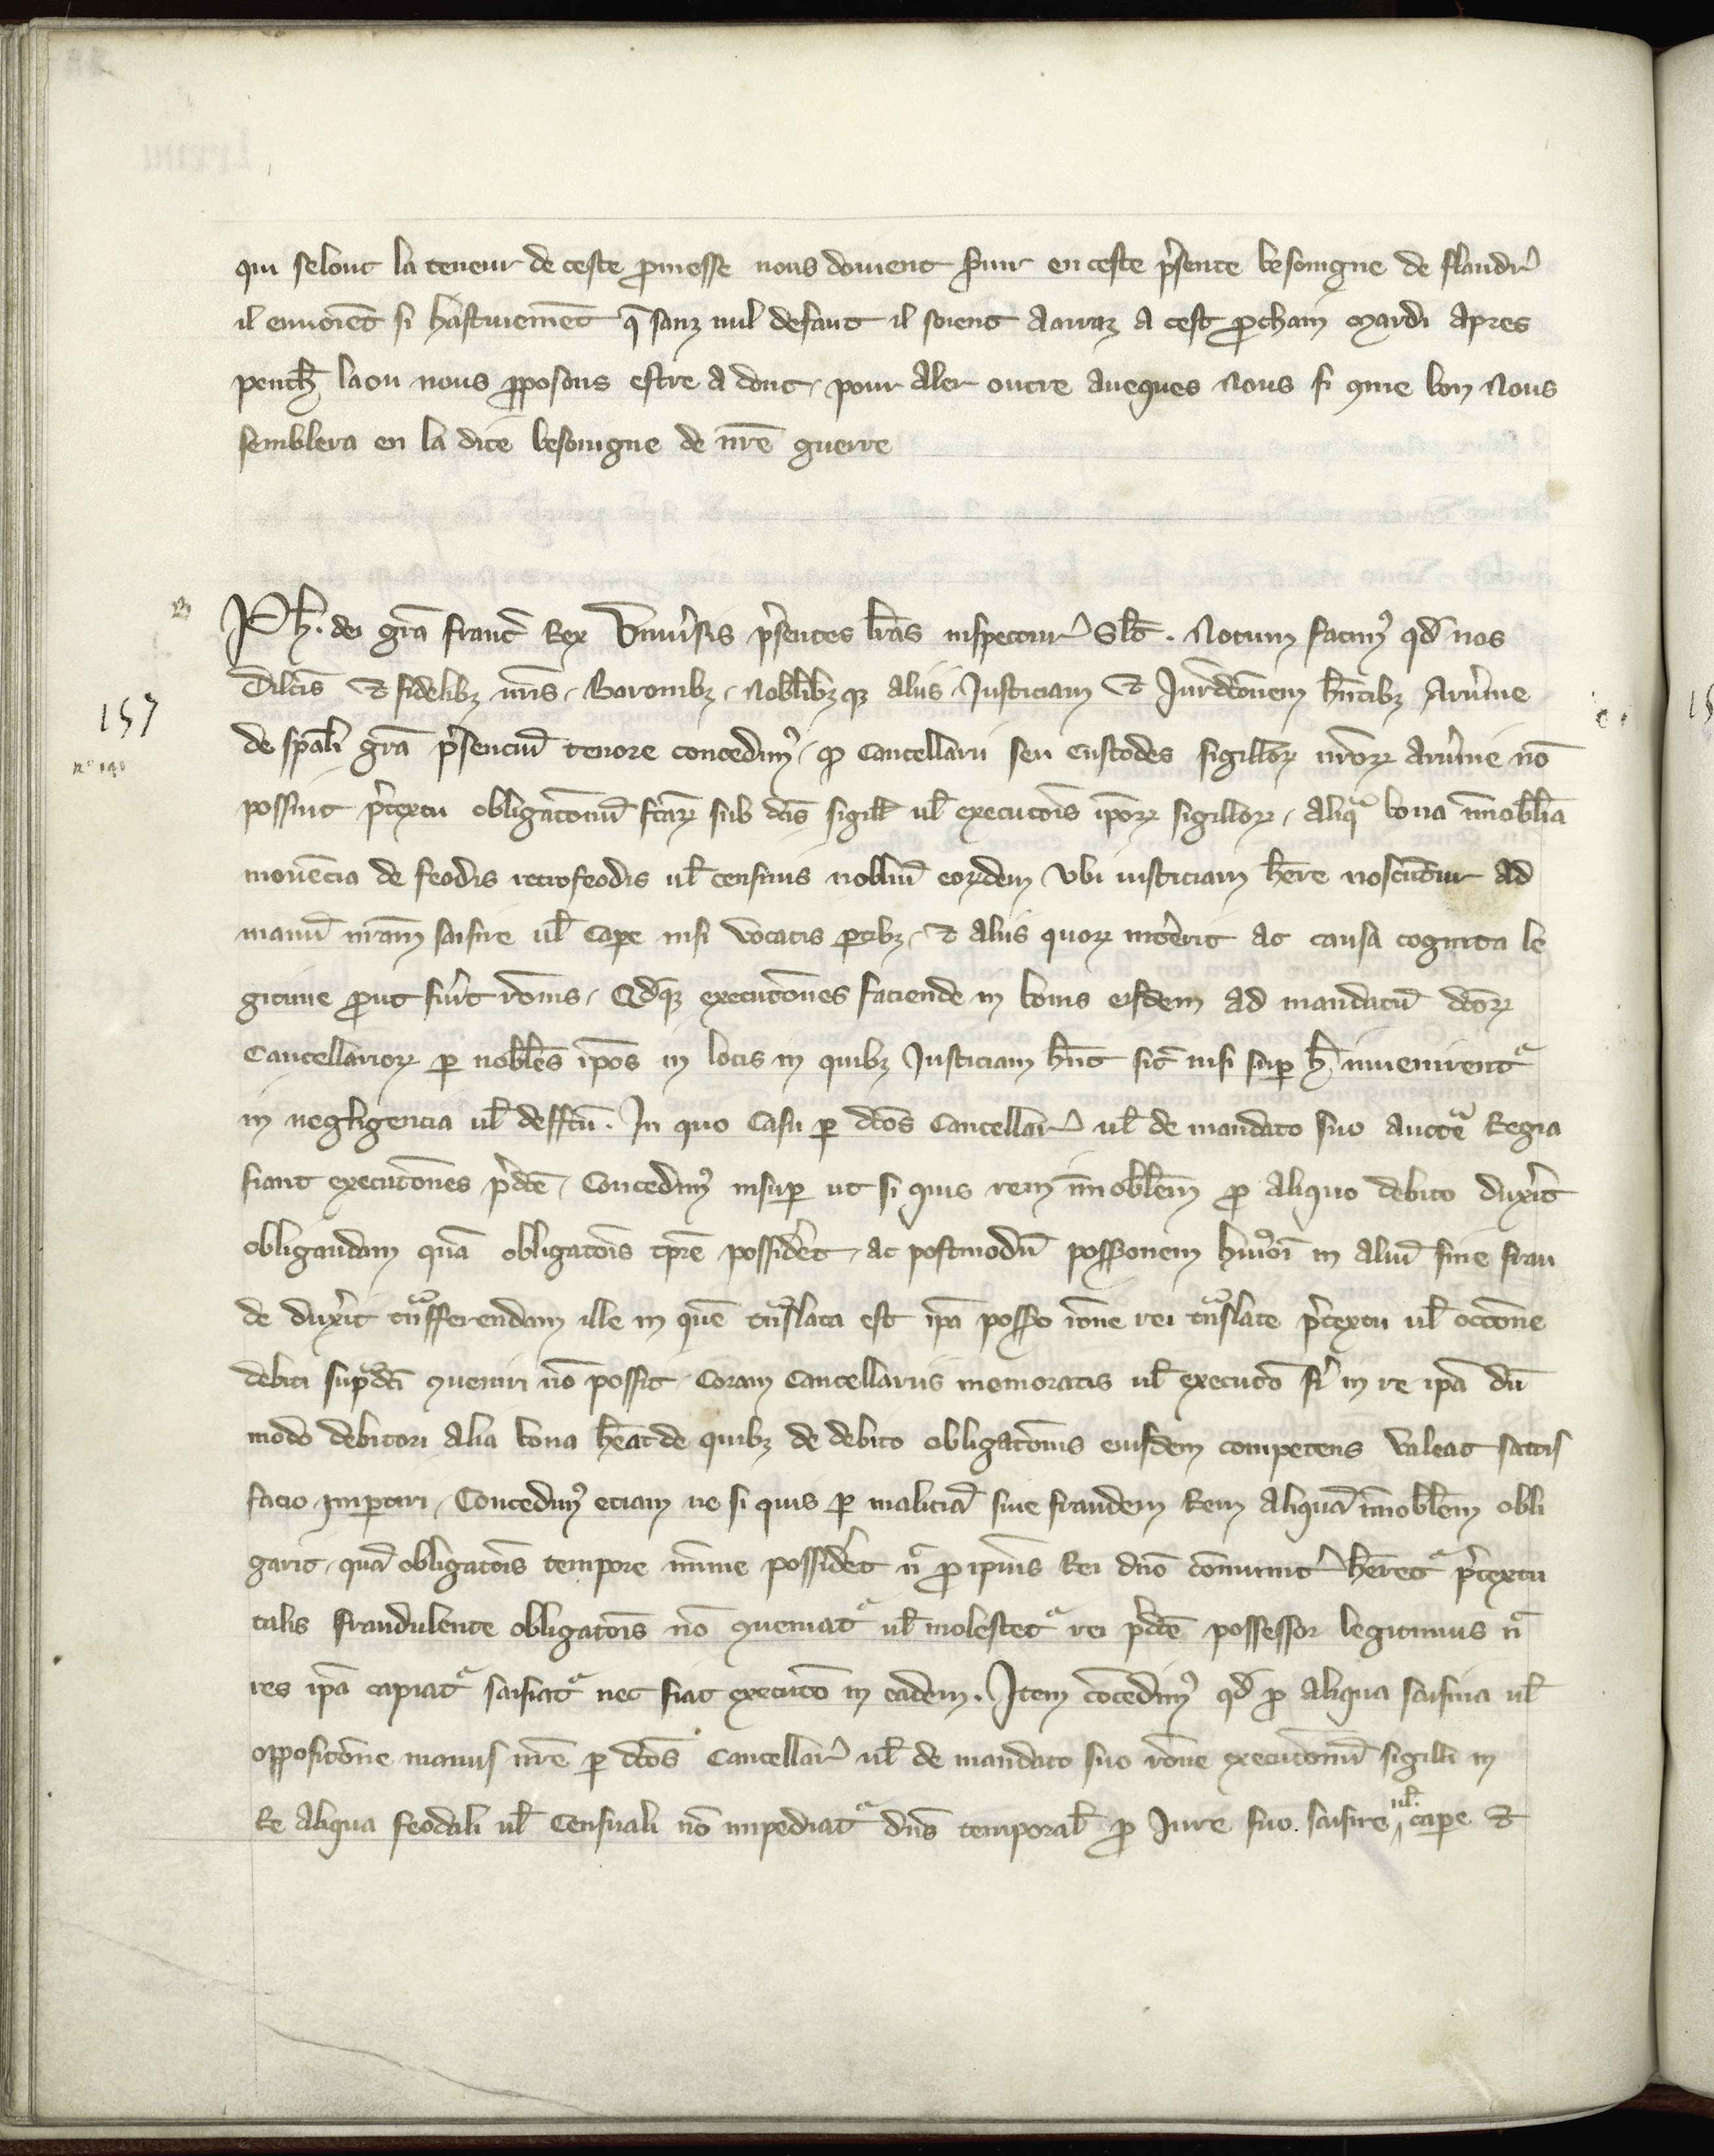 qui selonc la teneur de ceste pmesse nous doiuent suir en ceste psente besoingne de flandr
il enuoiēt si hastiuemēt q̄ sanz nul defaut il soient a arraz a cest pchain mardi apres
penth laou nous pposons estre a donc pour aler outre aueques nous si 9me bon nous
semblera en la dicē besoingne de nr̄e guerre
Ph. dei gr̄a franc̄ Rex Vniu'sis p'sentes lr̄as inspectur' Sl̄t. Notum facim9 qd̄ nos
Dilc̄is & fidelibȝ nr̄is Baronibȝ Nobl̄ibȝqȝ aliis Justiciam & Jurd̄cōnem hn̄tibȝ Aru'nie
157
de sp̄ali gr̄a p'senciū tenore concedim9 q Cancellarii seu Custodes sigillorꝝ nr̄orꝝ aru'nie nō
possint p'textu obligacōnū fc̄arꝝ sub dc̄is sigill' ul' execucōis ip̄orꝝ sigillorꝝ aliqa bona īmobl̄ia
mouēcia de feodis retrofeodis ul' censiuis nobliū eorꝝdem Vbi iusticiam hēre noscūtur ad
manū nr̄am saisire ul' Cape nisi vocatis ptibȝ & aliis quorꝝ int'erit ac causa cognita le
gitime put fu'it rōnis Qd̄qȝ execucōnes faciende in bonis eisdem ad mandatū dc̄orꝝ
Cancellariorꝝ p nobl̄es ip̄os in locis in quibȝ Justiciam hn̄t fiāt nisi sup h' inuenirentr
in negligencia ul' deffc̄u. In quo Casu p dc̄os Cancellar' ul' de mandato suo auctē Regia
fiant execucōnes p'dc̄e Concedim9 insup ut si quis rem īmobl̄em p aliquo debito dux'it
obligandam quā obligacōis tp̄re possid'et ac postmodū possōnem hui9oi in aliū sine frau
de dux'it tn̄sfferendam ille in quē tn̄slata est ip̄a possō rōne rei tn̄slate p'textu ul' occōne
debiti sup̄dc̄i 9ueniri nō possit Coram Cancellariis memoratis ul' execucō fi'i in re ip̄a dū
modo debitori alia bona hēat de quibȝ de debito obligacōnis eiusdem competens valeat sattis
facio impctiri Concedim9 eciam ne si quis p maliciā siue fraudem Rem aliquā īmobl̄em obli
garit quā obligacōis tempore mīme possid'et n p ip̄ius Rei dn̄o cōmunit' hēretr p'textu
talis fraudulente obligacōis nō 9ueniatr ul' molestetr rei p'dc̄e possessor legitimus n
res ip̄a capiatr saisiatr nec fiat execucō in eadem. Item cōcedim9 qd̄ p aliqua saisina ul'
opposicōne manus nr̄e p dc̄os Cancellar' ul' de mandato suo rōne execucōnū sigilli in
Re aliqua feodali ul' Censuali nō impediatr dn̄s temporal' p Jure suo saisire ul' cape &